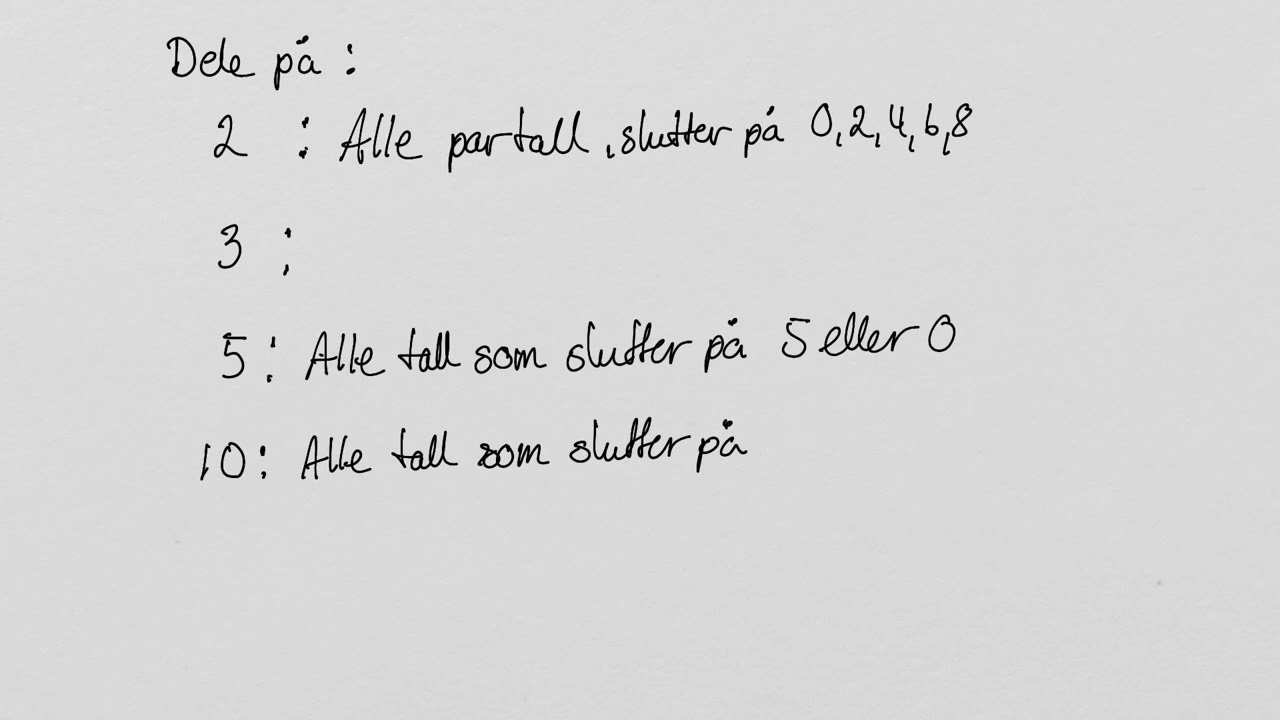 Dele på :
2 : Alle partall, slutter på 0,2,4,6,8
3 :
5 : Alle tall som slutter på 5 eller 0
10 : Alle tall som slutter på